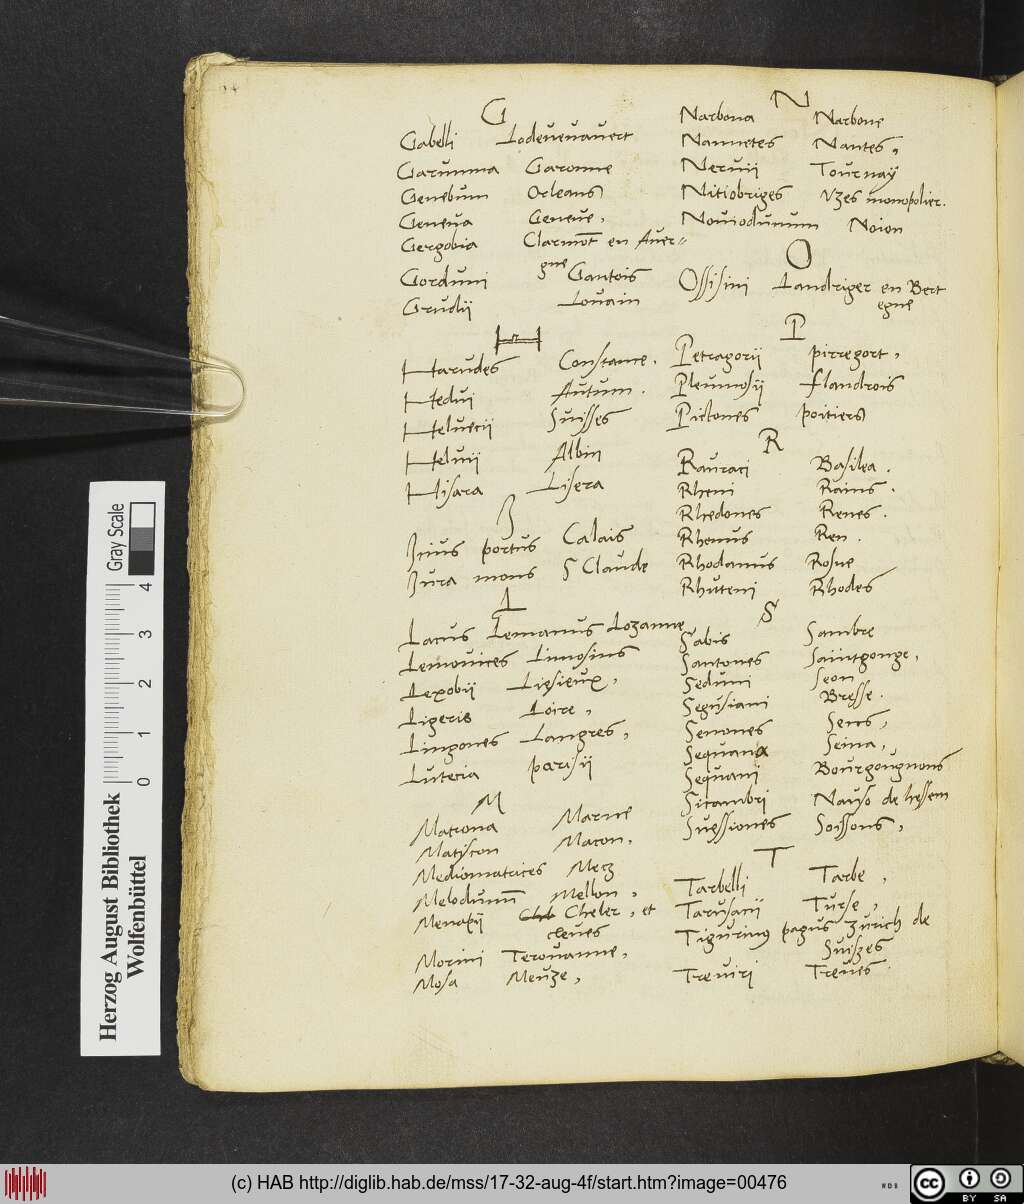 G
Gabelli Lodeueuauert
Garumna Garonne
Genebum Orleans
Geneua Geneue,
Gergobia Clarmōt en Auer=
gne
Gorduni Gantois
Grudii Louain
H
Harudes Constance.
Hedui Autum.
Heluecii Suisses
Heluii Albin
Hisara Lisera
I
Icius portus Calais
Iura mons S Claude
L
Lacus Lemanus Lozanne
Lemouices Limosins
Lexobii Liesieux,
Ligeris Loire,
Lingones Langres,
Lutecia parisii
M
Matrona Marne
Matiscon Macon.
Mediomatrices Metz
Melodunum Mellon,
Menapii Cheler, et
cleues
Morini Terouanne,
Mosa Meuze,
N
Narbona Narbone
Nannetes Nantes,
Neruii Tournay
Nitiobriges Vzes monopolier.
Nouiodunum Noion
O
Ossisini Landriger en Bert
egne
P
Petragorii pirregort,
Pleumosii flandrois
Pictones poitiers
R
Rauraci Basilea.
Rheni Rains.
Rhedones Renes.
Rhenus Ren.
Rhodanus Rosne
Rhuteni Rhodes
S
Sabis Sambre
Santones Saintgonge,
Seduni Seon
Segusiani Bresse.
Senones Sens,
Sequana Seina,
Sequani Bourgougnons
Sicambri Nauso de hessem
Suessiones Soissons,
T
Tarbelli Tarbe,
Tarusacii Turse,
Tigurinus pagus Zurich de
Suisses
Treuiri Treues.
Gray Scale
0 1 2 3 4
Herzog August Bibliothek
Wolfenbüttel
(c) HAB http://diglib.hab.de/mss/17-32-aug-4f/start.htm?image=00476
WDB
cc BY SA